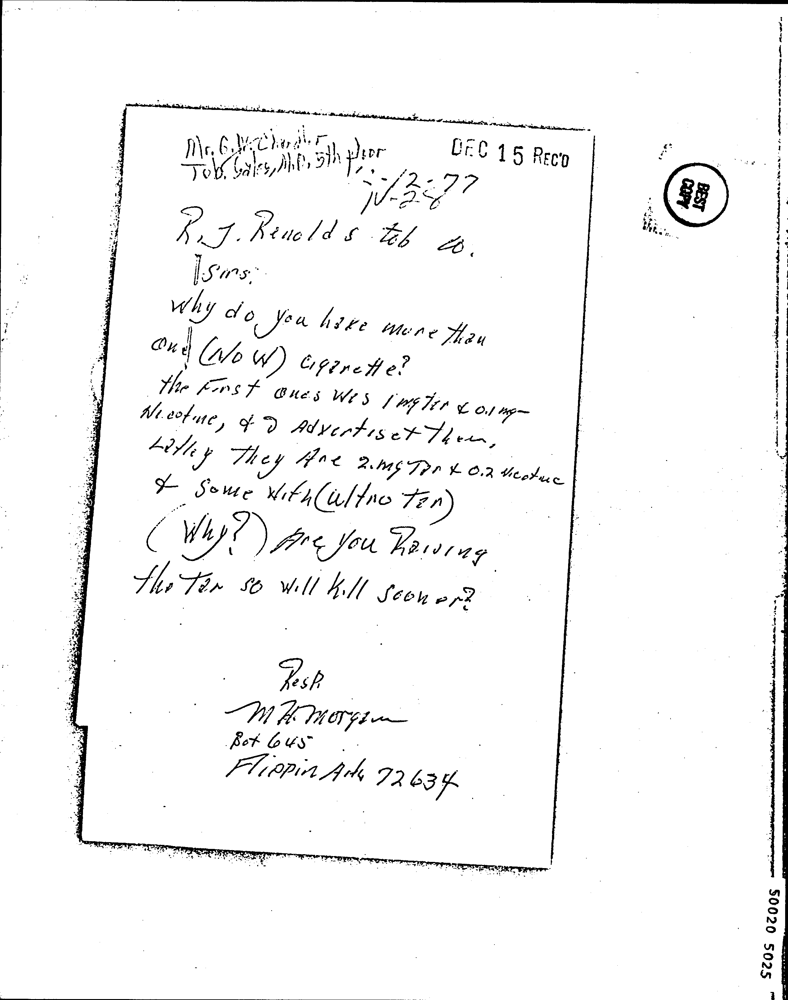 Mr. G. W. Chandler
Tob. Sales, 5th floor
DEC 15 REC'D
BEST
COPY
R. J. Renolds tob co.
Sirs:
Why do you have more than
one (NOW) cigarette?
the First ones wes 1 mg ter & 0.1 mg-
Nicotine, & Advertiset them,
Latley they Are 2. mg Tar & 0.2 Nicotine
& Some with (ultro Tar)
(Why?) Are you Raising
the Tar so will kill sooner?
Resp.
M H. Morgan
Box 645
Flippin Ark 72634
50020 5025